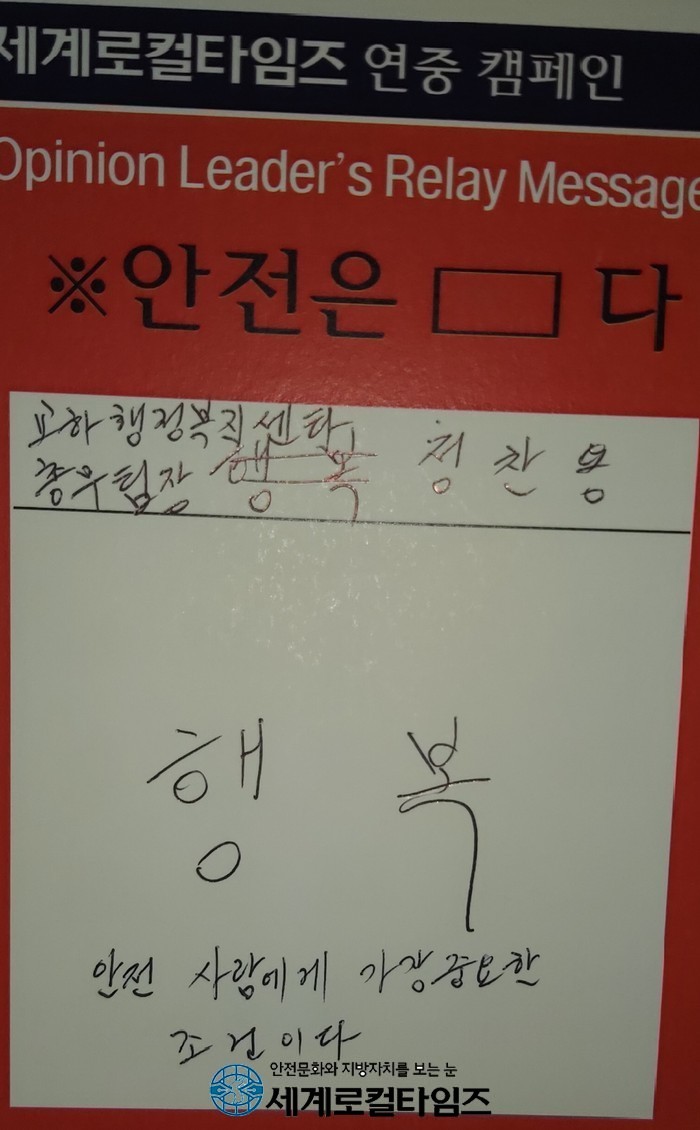 세계로컬타임즈 연중 캠페인
Opinion Leader's Relay Message
※안전은 □ 다
교하행정복지센타
총무팀장 행복 정찬용
행 복
안전 사람에게 가장중요한
조건이다
안전문화와 지방자치를 보는 눈
세계로컬타임즈